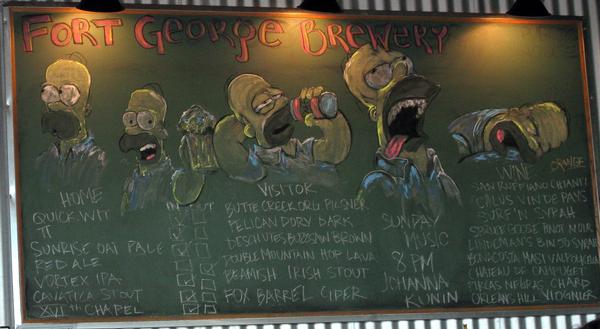 FORT GEORGE BREWERY
HOME
QUICK WIT
SUNRISE OAT PALE
RED ALE
VORTEX IPA
CAVATICA STOUT
XVI TH CHAPEL
VISITOR
BUTTE CREEK ORG PILSNER
PELICAN DORY DARK
DESCHUTES BUZZSAW BROWN
DOUBLE MOUNTAIN HOP LAVA
BEAMISH IRISH STOUT
FOX BARREL CIDER
SUNDAY
MUSIC
8 PM
JOHANNA
KUNIN
WINE
ORANGE
CHIANTI
VIN DE PAYS
SURF N SYRAH
SPRUCE GOOSE PINOT NOIR
LINDEMAN'S BIN 50 SYRAH
BONACOSTA MASI VALPOLICELLA
CHATEAU DE CAMPUGET
PIRCAS NEGRAS CHARD
ORLEANS HILL VIOGNIER